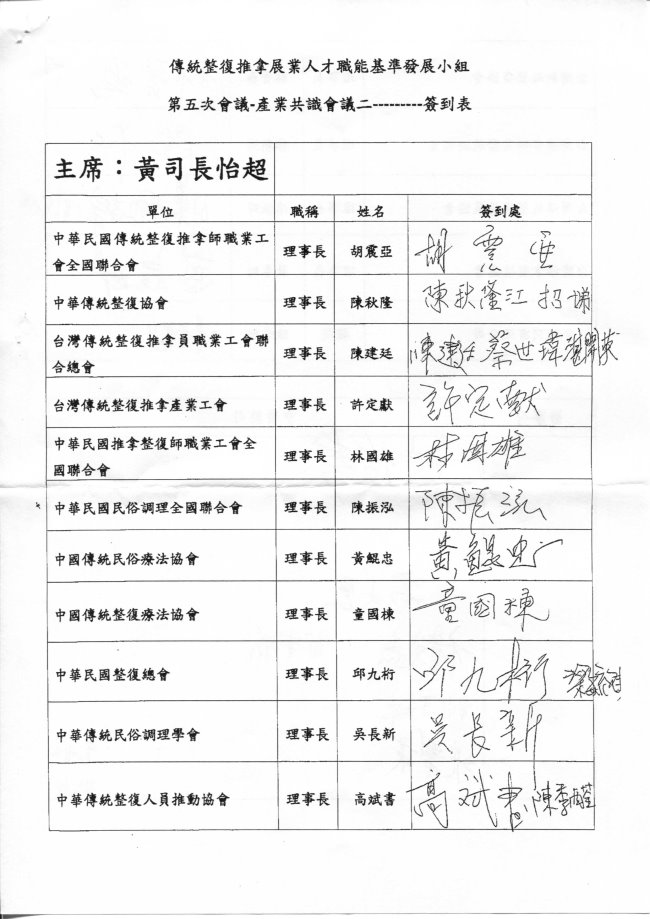 傳統整復推拿展業人才職能基準發展小組
第五次會議-產業共識會議二---------簽到表
主席：黃司長怡超
單位 職稱 姓名 簽到處
中華民國傳統整復推拿師職業工 理事長 胡震亞 胡震亞
會全國聯合會
中華傳統整復協會 理事長 陳秋隆 陳秋隆 江招娣
台灣傳統整復推拿員職業工會聯 理事長 陳建廷 陳建廷 蔡世瑋
合總會
台灣傳統整復推拿產業工會 理事長 許定獻 許定獻
中華民國推拿整復師職業工會全 理事長 林國雄 林國雄
國聯合會
中華民國民俗調理全國聯合會 理事長 陳振泓 陳振泓
中國傳統民俗療法協會 理事長 黃鯤忠 黃鯤忠
中國傳統整復療法協會 理事長 童國棟 童國棟
中華民國整復總會 理事長 邱九桁 邱九桁
中華傳統民俗調理學會 理事長 吳長新 吳長新
中華傳統整復人員推動協會 理事長 高斌書 高斌書